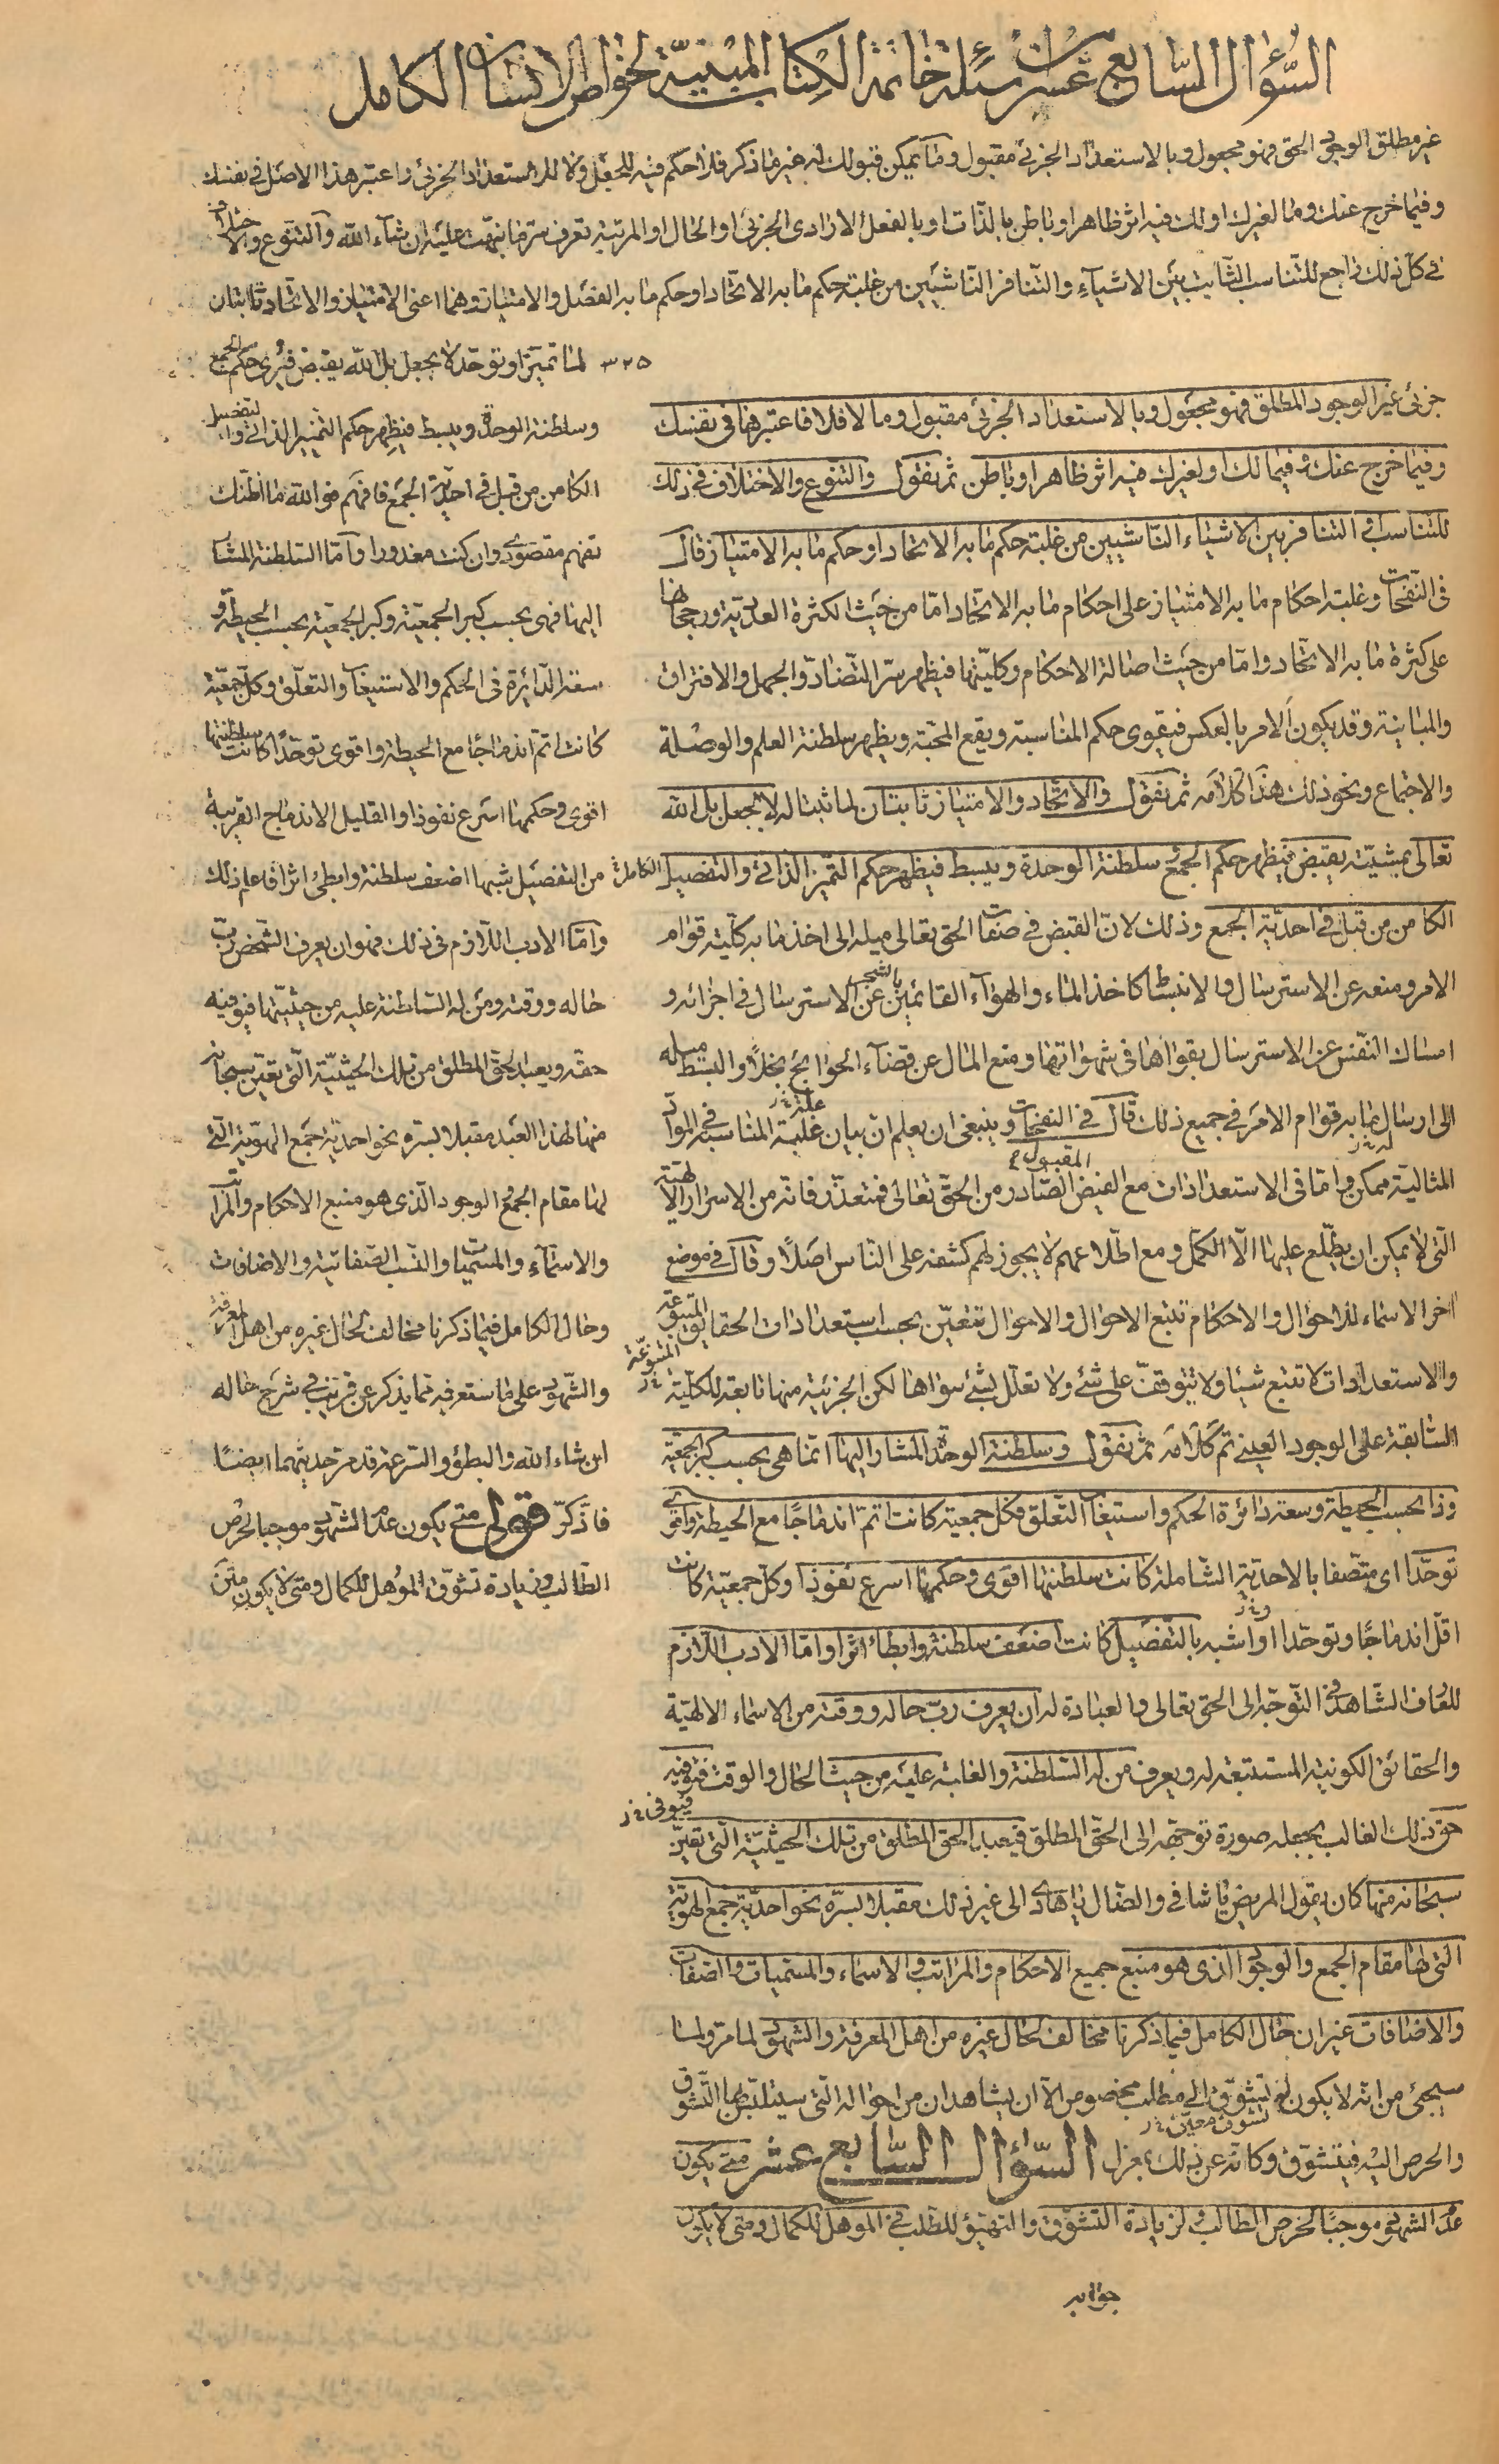 السؤال السابع عشر من أسئلة خاتمة الكتاب المبنية لخواص الانسان الكامل
غير مطلق الوجود الحق فهو مجعول وبالاستعداد الجزئي مقبول وما يمكن قبولك له غير ما ذكر فلا حكم فيه للجعل ولا للاستعداد الجزئي واعتبر هذا الاصل في نفسك
وفيما خرج عنك وما لغيرك او لك فيه اثر ظاهرا وباطن بالذات او بالفعل الارادي الجزئي او الحال او المرتبة تعرف سر ما نبهت عليه ان شاء الله والتنوع والاختلاف
في كل ذلك راجع للتناسب الثابت بين الاشياء والتنافر الناشيين من غلبة حكم ما به الاتحاد او حكم ما به الفصل والامتياز وهما اعني الامتياز والاتحاد ثابتان
٣٢٥
لما تميز او توحد لا بجعل بل الله يقبض فيرى حكم الجمع
وسلطنة الوحدة ويبسط فيظهر حكم التميز الذاتي والتفصيل
الكامن من قبل في احدية الجمع فافهم فوالله ما اظنك
تفهم مقصودي وان كنت معذورا واما السلطنة المشار
اليها فهي بحسب كبر الجمعية وكبر الجمعية بحسب الحيطة و
سعة الدائرة في الحكم والاستيعاب والتعلق وكل جمعية
كانت اتم اندماجا مع الحيطة واقوى توحدا كانت سلطنتها
اقوى وحكمها اسرع نفوذا والقليل الاندماج القريبة
من التفصيل شبها اضعف سلطنة وابطئ اثرا فاعلم ذلك
واما الادب اللازم في ذلك فهو ان يعرف الشخص رب
حاله ووقته ومن له السلطنة عليه من حيثيتها فيوفيه
حقه ويعبد الحق المطلق من تلك الحيثية التي تعين سبحانه
منها لهذا العبد مقبلا بسره نحو احدية جمع الهوية التي
لها مقام الجمع الوجود الذي هو منبع الاحكام والمراتب
والاسماء والمسميات والنسب الصفاتية والاضافات
وحال الكامل فيما ذكرنا مخالف لحال غيره من اهل المعرفة
والشهود على ما ستعرفه مما يذكر عن قريب في شرح حاله
ان شاء الله والبطؤ والسرعة قد مر حديثهما ايضا
فاذكر قوله متى يكون عدم الشهود موجبا لحرص
الطالب وزيادة تشوق المؤهل للكمال ومتى لا يكون متى
جزئي غير الوجود المطلق فهو مجعول وبالاستعداد الجزئي مقبول وما لا فلا فاعتبرها في نفسك
وفيما خرج عنك وفيما لك او لغيرك فيه اثر ظاهرا وباطن ثم نقول والتنوع والاختلاف في ذلك
للتناسب او التنافر بين الاشياء الناشيين من غلبة حكم ما به الاتحاد او حكم ما به الامتياز قال
في النفحات وغلبة احكام ما به الامتياز على احكام ما به الاتحاد اما من حيث الكثرة العددية ورجحانها
على كثرة ما به الاتحاد واما من حيث اصالة الاحكام وكليتها فيظهر سر التضاد والجهل والافتراق
والمباينة وقد يكون الامر بالعكس فيقوى حكم المناسبة ويقع المحبة ويظهر سلطنة العلم والوصلة
والاجتماع ونحو ذلك هذا كلامه ثم نقول والاتحاد والامتياز ثابتان لما ثبتا له لا بجعل بل الله
تعالى بمشيته يقبض فيظهر حكم الجمع سلطنة الوحدة ويبسط فيظهر حكم التميز الذاتي والتفصيل الكامل
الكامن من قبل في احدية الجمع وذلك لان القبض في صفات الحق تعالى ميله الى اخذ ما به كلية قوام
الامر ومنعه عن الاسترسال والانبساط كاخذ الماء والهواء القائمين بالشجر عن الاسترسال في اجزائه و
امساك النفس عن الاسترسال بقواها في شهواتها ومنع المال عن قضاء الحوائج بخلا والبسط ميله
الى ارسال ما به قوام الامر في جميع ذلك قال في النفحات وينبغي ان يعلم ان بيان غلبة المناسبة في المواد
المثالية ممكن واما في الاستعدادات مع الفيض المقبول الصادر من الحق تعالى فمتعذر فانه من الاسرار الالهية
التي لا يمكن ان يطلع عليها الا الكمل ومع اطلاعهم لا يجوز لهم كشفه على الناس اصلا وقال في موضع
اخر الاسماء للاحوال والاحكام تتبع الاحوال والاحوال تتعين بحسب استعدادات الحقايق المتبوعة
والاستعدادات لا تتبع شيئا ولا يتوقف على شيء ولا تعلل بشيء سواها لكن الجزئية منها تابعة للكلية
السابقة على الوجود العيني تم كلامه ثم نقول وسلطنة الوحدة المشار اليها انما هي بحسب كبر الجمعية
وذا بحسب الحيطة وسعة دائرة الحكم واستيعاب التعلق فكل جمعية كانت اتم اندماجا مع الحيطة واقوى
توحدا اي متصفا بالاحدية الشاملة كانت سلطنتها اقوى وحكمها اسرع نفوذا وكل جمعية كانت
اقل اندماجا وتوحدا او اشبه بالتفصيل كانت اضعف سلطنة وابطاء اثرا واما الادب اللازم
للعارف الشاهد في التوجه الى الحق تعالى والعبادة له ان يعرف رب حاله ووقته من الاسماء الالهية
والحقائق الكونية المستتبعة له ويعرف من له السلطنة والغلبة عليه من حيث الحال والوقت فتوفيه
حق ذلك الغالب بجعله صورة توجهه الى الحق المطلق فيعبد الحق المطلق من تلك الحيثية التي تعين
سبحانه منها كان يقول المريض يا شافي والضال يا هادي الى غير ذلك مقبلا بسره نحو احدية جمع الهوية
التي لها مقام الجمع والوجود الذي هو منبع جميع الاحكام والمراتب والاسماء والمسميات والصفات
والاضافات غير ان حال الكامل فيما ذكرنا مخالف لحال غيره من اهل المعرفة والشهود لما مر ولما
سيجئ من انه لا يكون له تشوق الى مطلب مخصوص الا ان يشاهد ان من احواله التي سيتلبس بها التشوق
والحرص اليه فيتشوق وكانه عن ذلك بمعزل السؤال السابع عشر متى يكون
عدم الشهود موجبا لحرص الطالب ولزيادة التشوق والتهيؤ للطلب في المؤهل للكمال ومتى لا يكون
جوابه